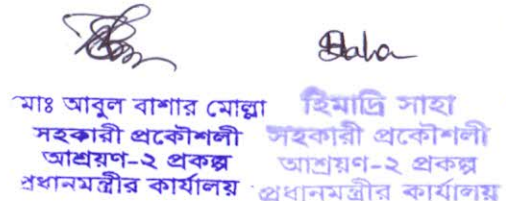 মোঃ আবুল বাশার মোল্লা
সহকারী প্রকৌশলী
আশ্রয়ণ-২ প্রকল্প
প্রধানমন্ত্রীর কার্যালয়
হিমাদ্রি সাহা
সহকারী প্রকৌশলী
আশ্রয়ণ-২ প্রকল্প
প্রধানমন্ত্রীর কার্যালয়